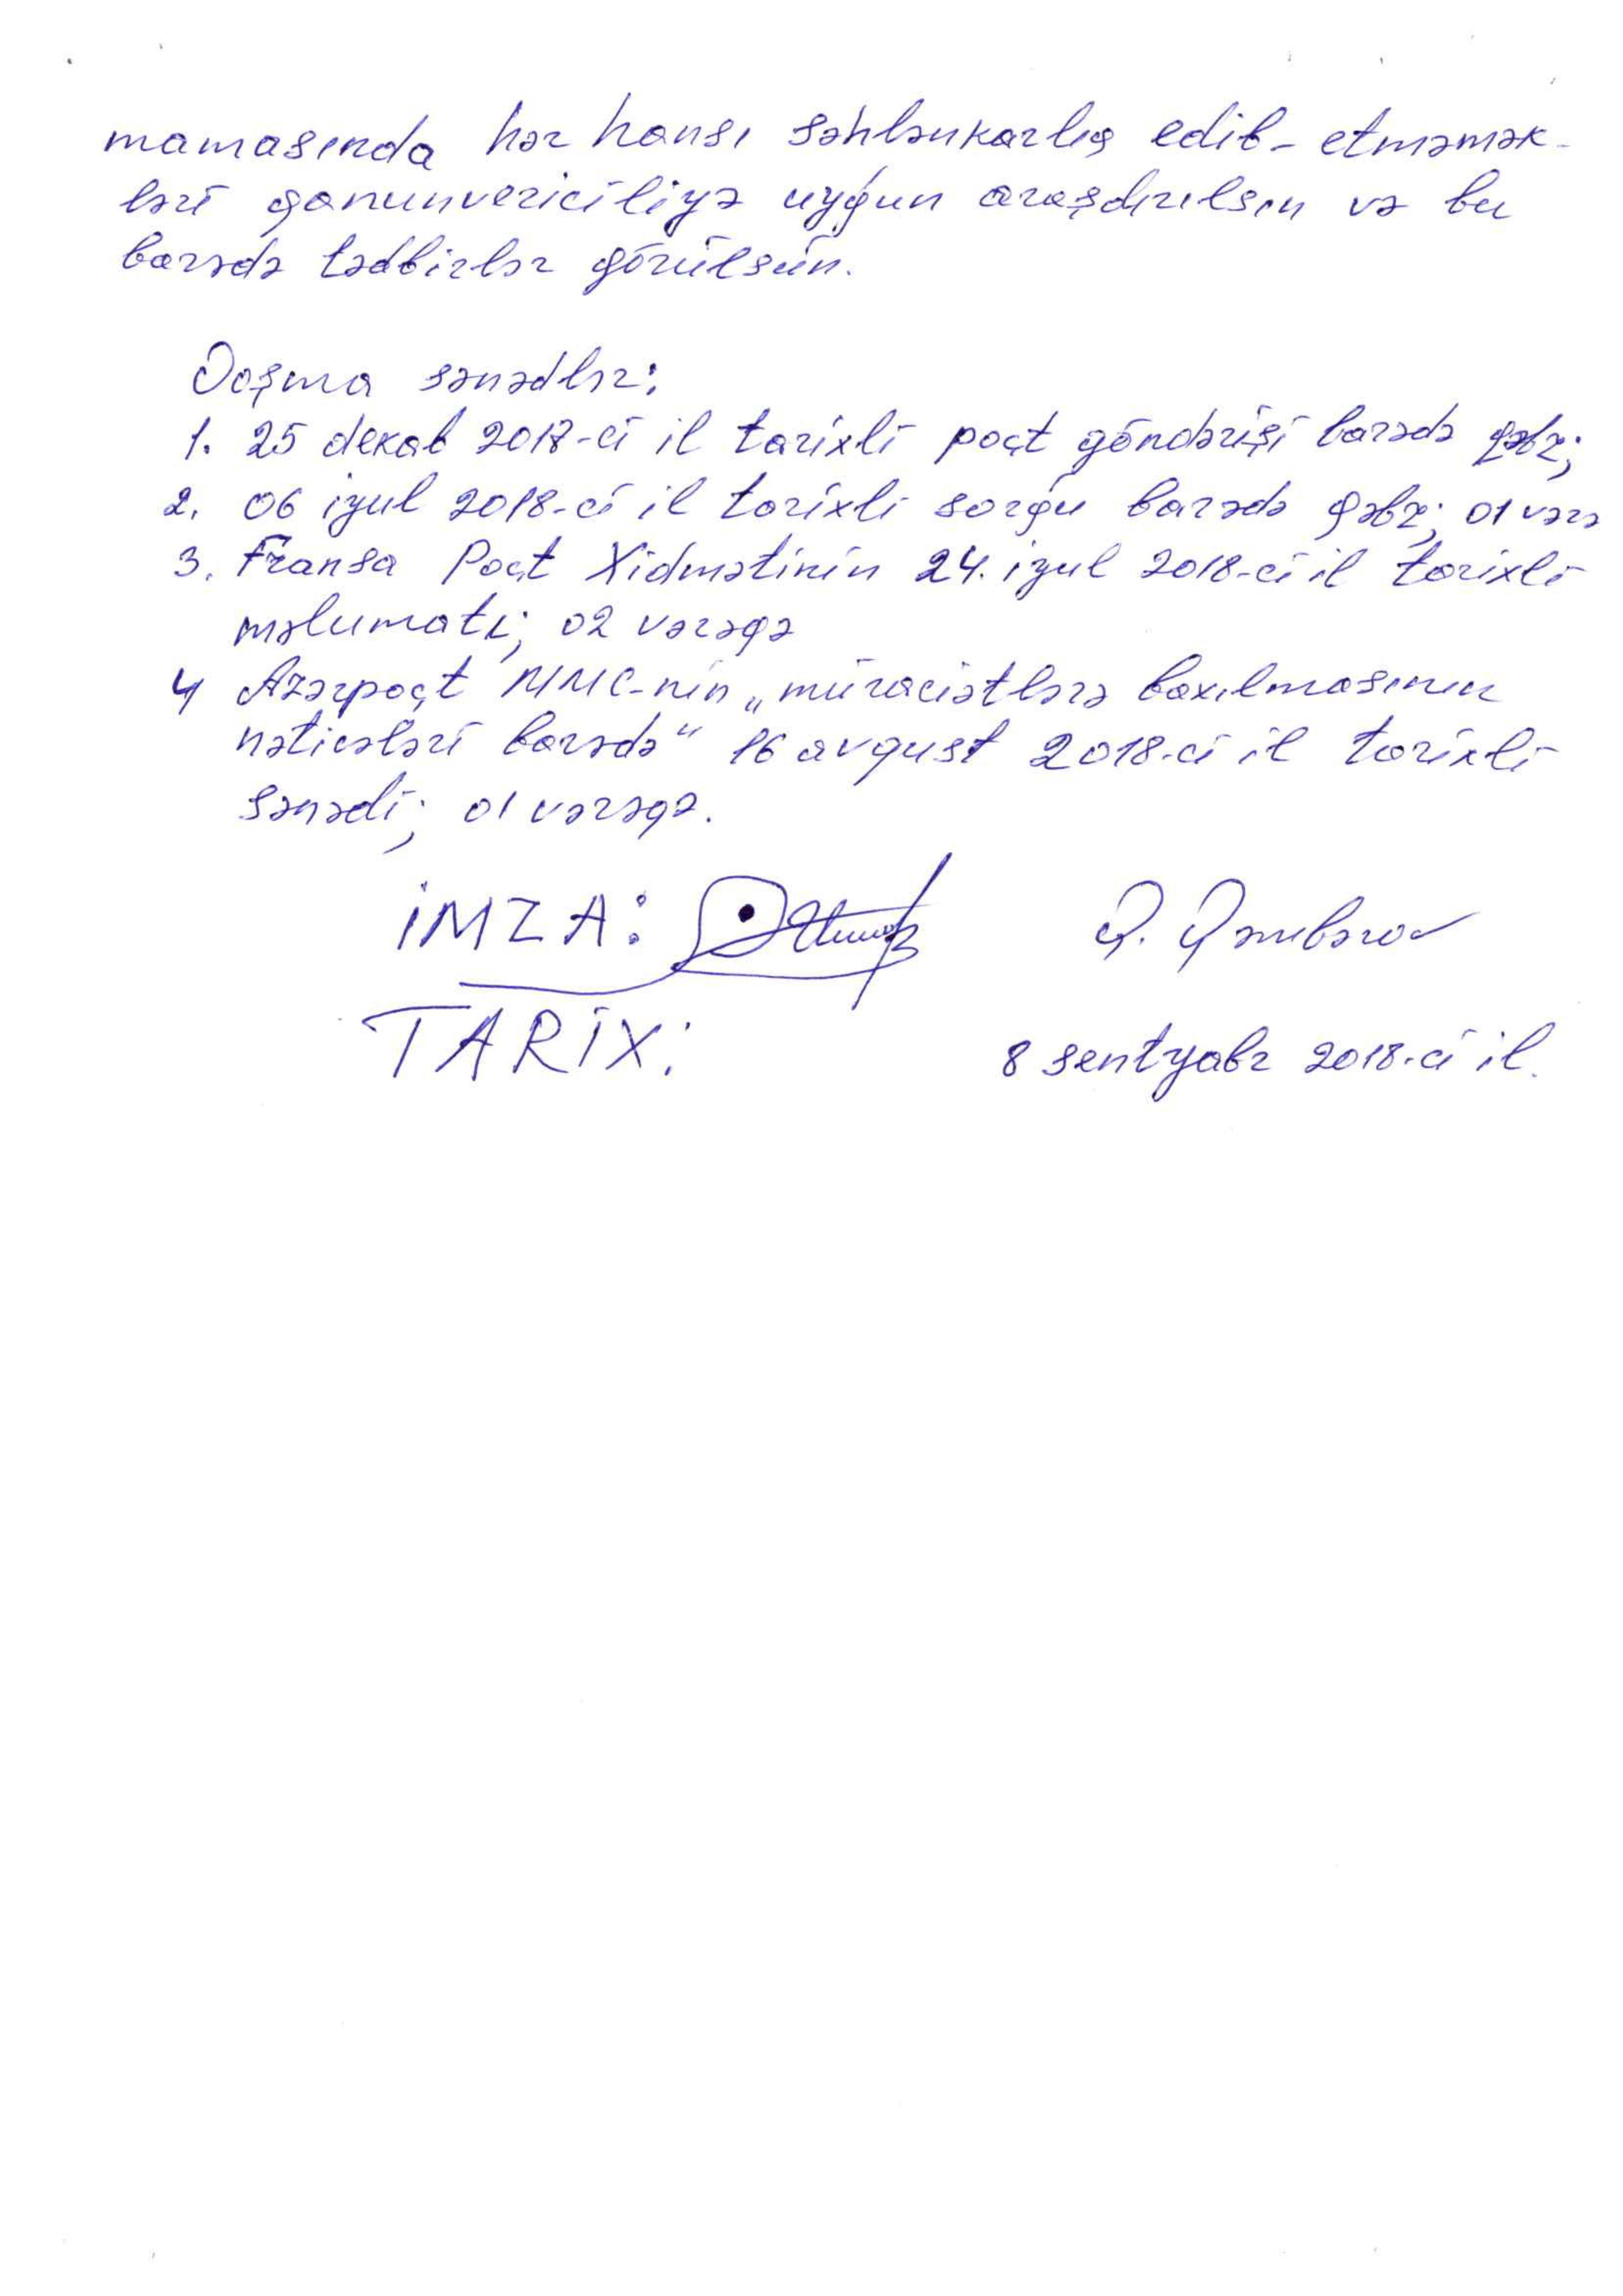 mamasında hər hansı səhlənkarlıq edib-etməmək-
ləri qanunvericiliyə uyğun araşdırılsın və bu
barədə tədbirlər görülsün.
Qoşma sənədlər:
1. 25 dekab 2017-ci il tarixli poçt göndərişi barədə qəbz;
2. 06 iyul 2018-ci il tarixli sorğu barədə qəbz; 01 vərə
3. Fransa Poçt Xidmətinin 24. iyul 2018-ci il tarixli
məlumatı; 02 vərəqə
4 Azərpoçt MMC-nin „müraciətlərə baxılmasının
nəticələri barədə" 16 avqust 2018-ci il tarixli
sənədi; 01 vərəqə.
İMZA: Q. Qəmbərov
TARİX: 8 sentyabr 2018-ci il.